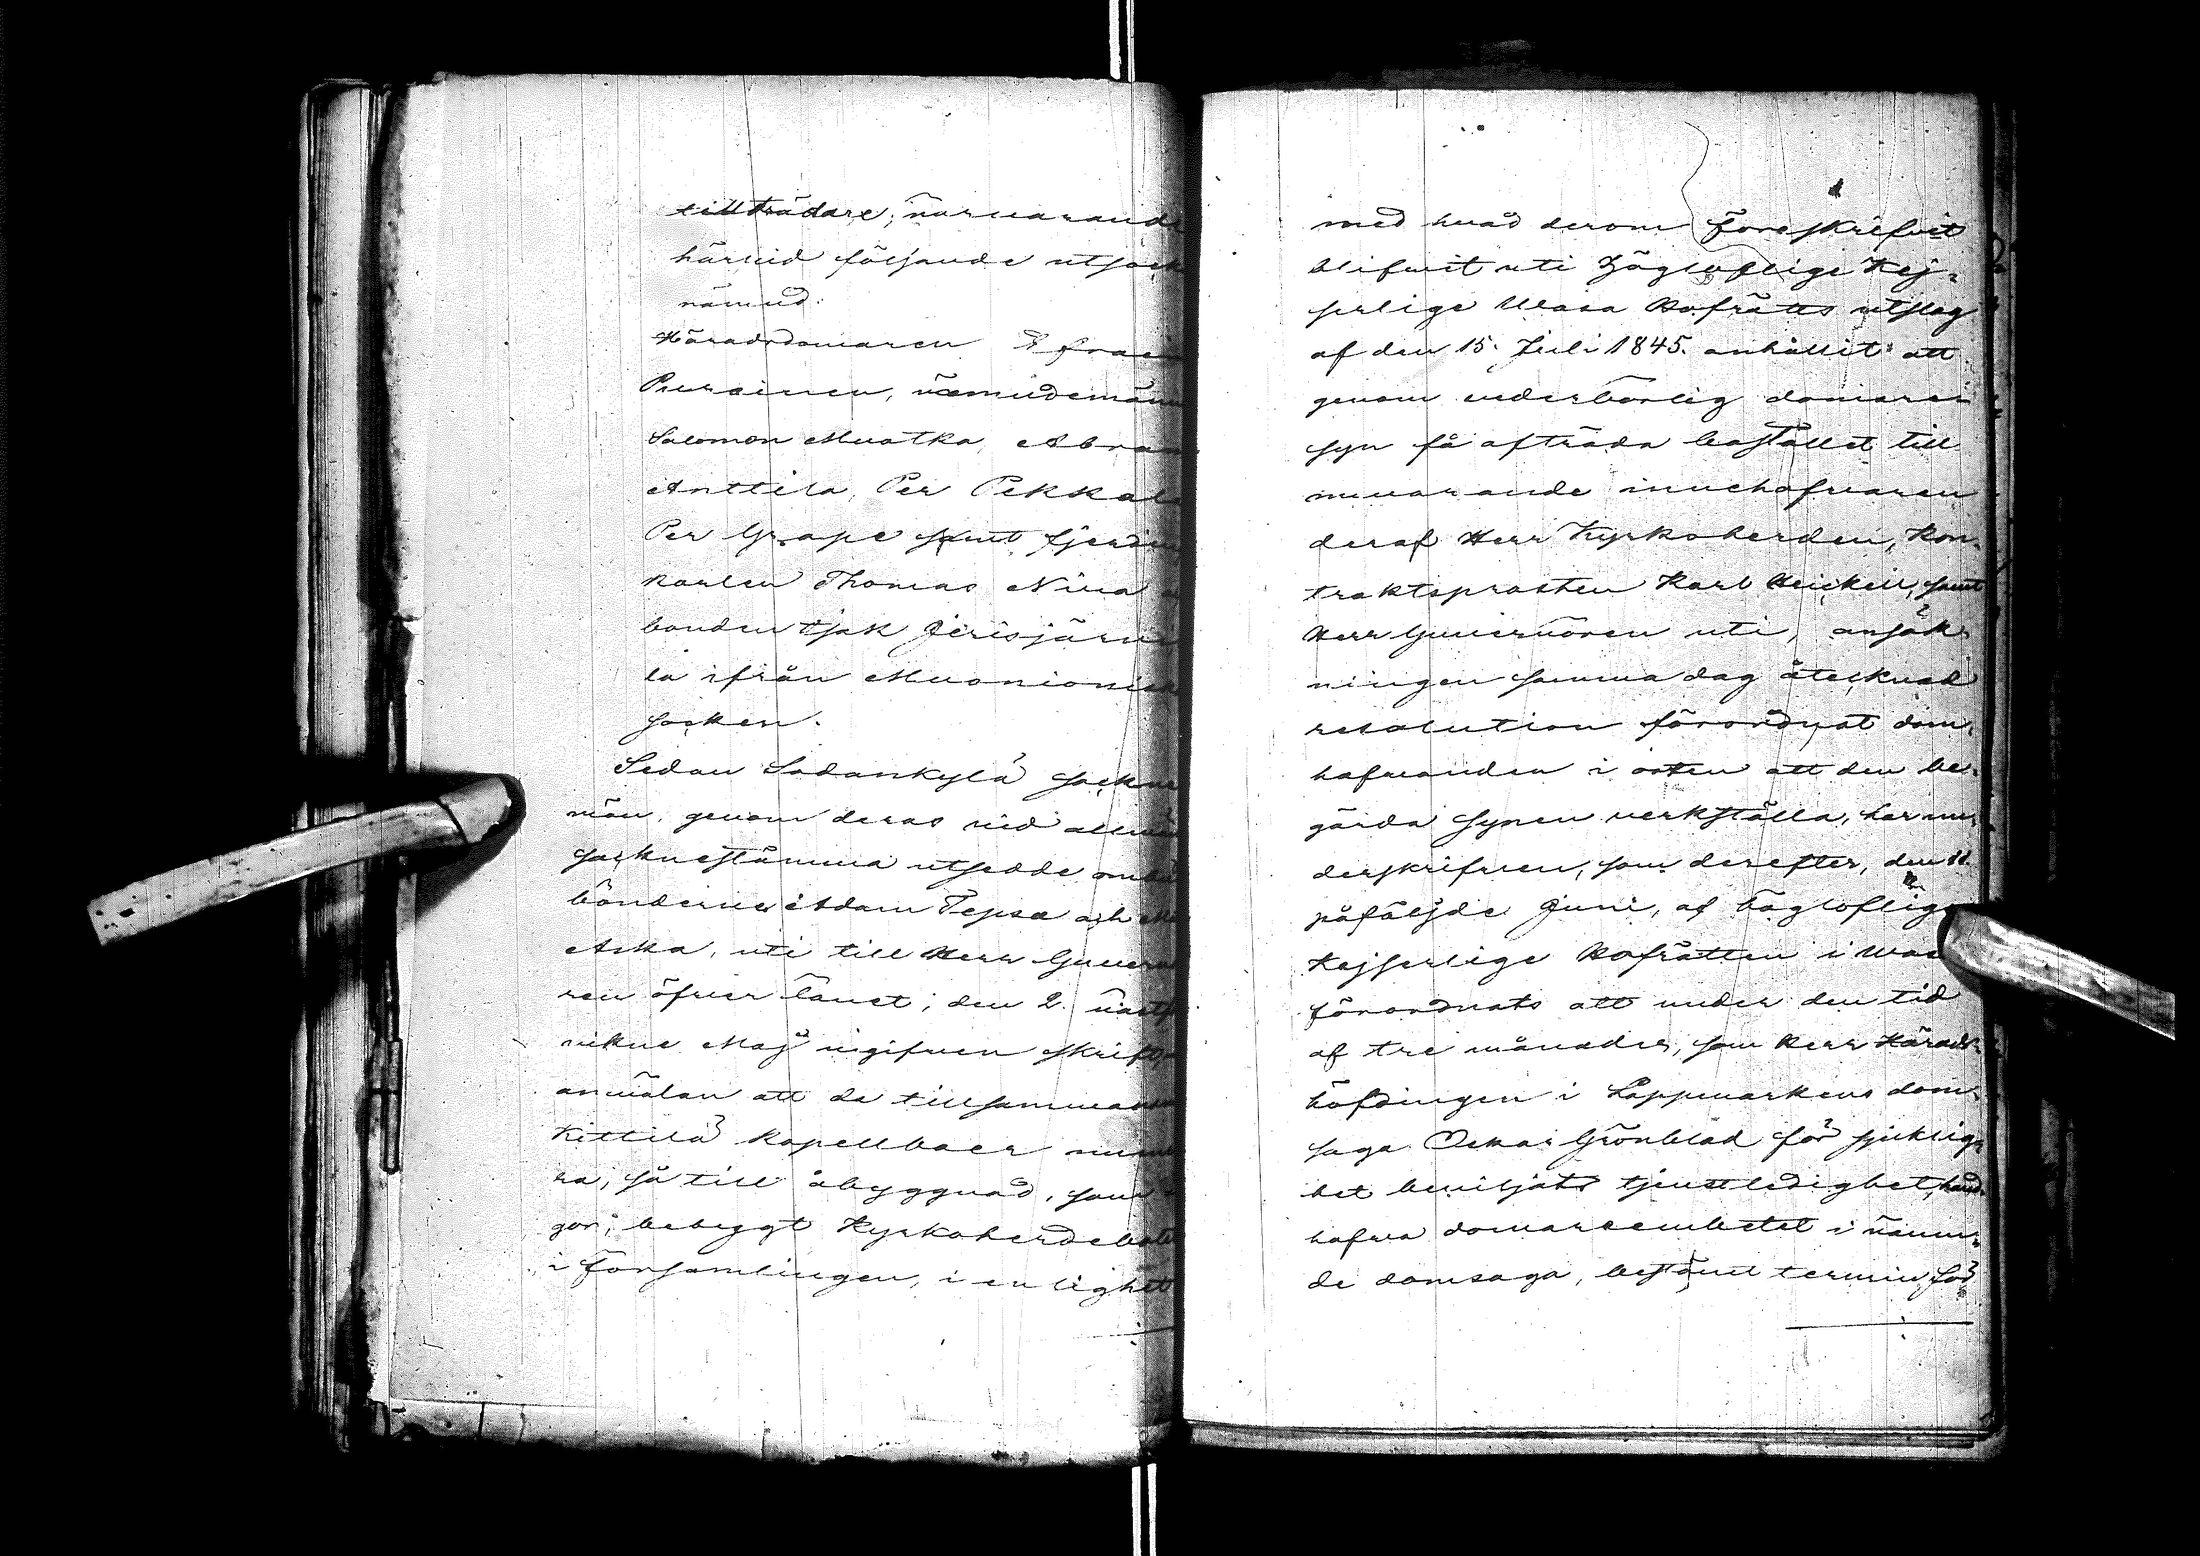 tillträdare; närvarande
härvid följande utsock
nämnd:
Häradsdomaren Efrai
Puurainen, nämndemänn
Salomon Muotka, Abra
Anttila, Per Pekkal
Per Grape samt fjerdin
karlen Thomas Niva
bonden Isak Jerisjärvi
la ifrån Muonionisk
socken.
Sedan Sodankylä sockne
män, genom deras vid allmä
socknestämma utsedde omb
bönderne Adam Tepsa och
Aska, uti till Herr Guver
ren öfver länet, den 2. näst
vikne Maj ingifven skrift
anmälan att de tillsammans
Kittilä kapellboer num
ra, så till åbyggnad, som
gor, bebyggt Kyrkoherdebol
i församlingen, i enlighet
med hvad derom föreskrifvit
blifvit uti Högloflige Kej-
serlige Wasa Hofrätts utslag
af den 15. Juli 1845. anhållit att
genom vederbörlig domare
syn få afträda bostället till
nuvarande innehafvaren
deraf Herr Kyrkoherden, Kon-
traktsprosten Karl Heickell, samt
Herr Guvernören uti, ansök-
ningen samma dag åtecknad
resolution förordnat dom-
hafvanden i orten att den be-
gärda synen verkställa, har un-
derskrifven, som derefter, den 11.
påföljde Juni, af högloflige
Kejserlige Hofrätten i Wasa
förordnats att under den tid
af tre månader, som Herr Härads-
höfdingen i Lappmarkens dom-
saga Oskar Grönblad för sjuklig-
het beviljats tjenstledighet, hand-
hafva domareembetet i nämn-
de domsaga, bestämt termin för